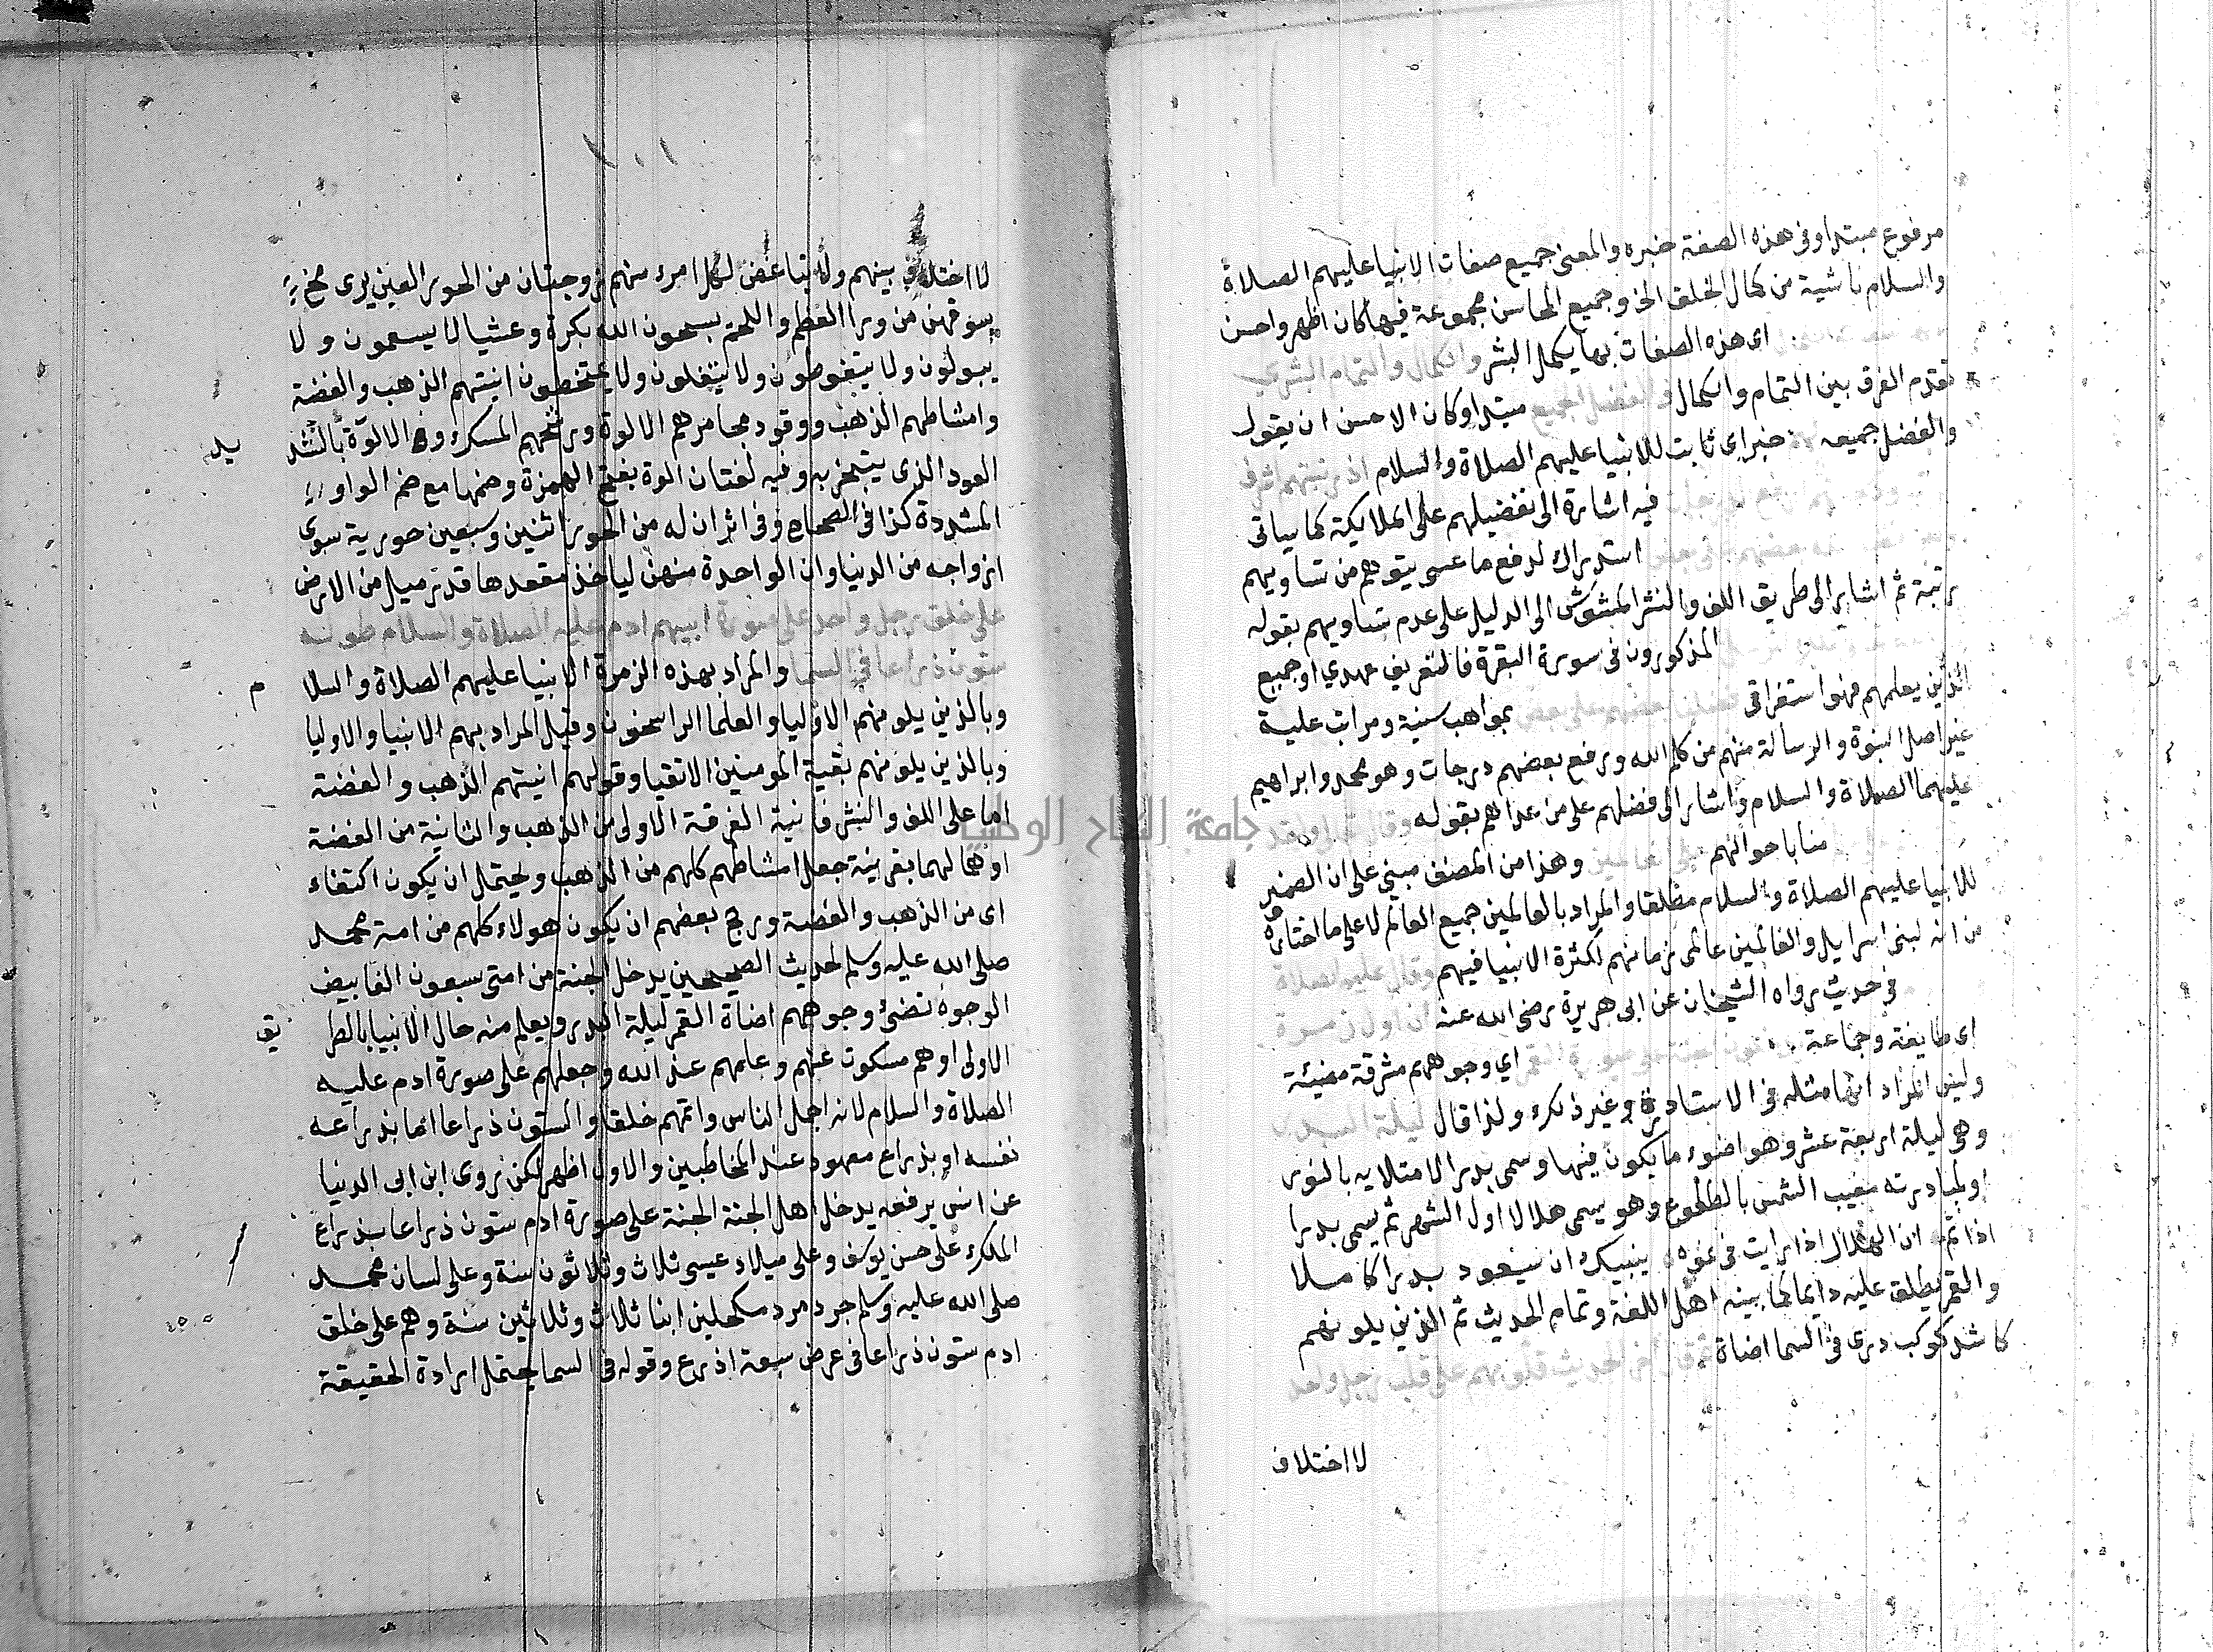 مرفوع مبتدا وفى هذه الصفة خبره والمعنى جميع صفات الانبيا عليهم الصلاة
والسلام ناشية من كمال الخلق الخ وجميع المحاسن مجموعة فيها كان اظهر واحسن
اى هذه الصفات بها يكمل البشر والكمال والتمام البشري
تقدم الفرق بين التمام والكمال والفضل الجميع مبتدا وكان الاحسن ان يقول
والفضل جميعه خبر اى ثابت للانبيا عليهم الصلاة والسلام اذ رتبتهم اشرف
فيه اشارة الى تفضيلهم على الملايكة كما سياتى
استدراك لدفع ما عسى يتوهم من تساويهم
رتبة ثم اشار الى طريق اللف والنشر المشوش الى الدليل على عدم تساويهم بقوله
المذكورون فى سورة البقرة فالتعريف عهدي او جميع
الذين يعلمهم فهو استغراقى فضلنا بعضهم على بعض بمواهب سنية ومراتب علية
غير اصل النبوة والرسالة منهم من كلم الله ورفع بعضهم درجات وهو محمد وابراهيم
عليهما الصلاة والسلام واشار الى فضلهم على من عداهم بقوله وقال تعالى ولقد
منا باحوالهم على العالمين وهذا من المصنف مبني على ان الضمير
للانبيا عليهم الصلاة والسلام مطلقا والمراد بالعالمين جميع العالم لا على ما اختاره
من انه لبنى اسرايل والعالمين عالمى زمانهم لكثرة الانبيا فيهم وقال عليه الصلاة
فى حديث رواه الشيخان عن ابى هريرة رضى الله عنه ان اول زمرة
اى طايفة وجماعة يدخلون الجنة على صورة القمر اي وجوههم مشرقة مضيئة
وليس المراد انها مثله فى الاستادرة وغير ذلك ولذا قال ليلة البدر
وهى ليلة اربعة عشر وهو اضوء ما يكون فيها وسمى بدرا لامتلايه بالنور
او لمبادرته مغيب الشمس بالطلوع وهو يسمى هلالا اول الشهر ثم يسمى بدرا
اذا تم ان الهلال اذا رايت فى نموه ينبيك ان سيعود بدرا كاملا
والقمر يطلق عليه دايما كما بينه اهل اللغة وتمام الحديث ثم الذين يلونهم
كاشد كوكب درى فى السما اضاة ثم قال اخر الحديث قلوبهم على قلب رجل واحد
لا اختلاف
١٠١
لا اختلاف بينهم ولا تباغض لكل امرء منهم زوجتان من الحور العين يرى مخ
سوقهن من ورا العظم واللحم يسبحون الله بكرة وعشيا لا يسقمون ولا
يبولون ولا يتغوطون ولا يتفلون ولا يمتخطون انيتهم الذهب والفضة
وامشاطهم الذهب ووقود مجامرهم الالوة ورشحهم المسك والالوة بالتشديد
العود الذى يتبخر به وفيه لغتان الوة بفتح الهمزة وضمها مع ضم الواو
المشددة كذا فى الصحاح وفى اثر ان له من الحور اثنين وسبعين حورية سوى
ازواجه من الدنيا وان الواحدة منهن لياخذ مقعدها قدر ميل من الارض
على خلق رجل واحد على صورة ابيهم ادم عليه الصلاة والسلام طوله
ستون ذراعا في السما والمراد بهذه الزمرة الانبيا عليهم الصلاة والسلام
وبالذين يلونهم الاوليا والعلما الراسخون وقيل المراد بهم الانبيا والاوليا
وبالذين يلونهم بقية المومنين الاتقيا وقولهم انيتهم الذهب والفضة
اما على اللف والنشر فانية الفرقة الاولى من الذهب والثانية من الفضة
او هما لهما بقرينة جعل امشاطهم كلهم من الذهب ويحتمل ان يكون اكتفاء
اى من الذهب والفضة ورجح بعضهم ان يكون هولاء كلهم من امة محمد
صلى الله عليه وسلم لحديث الصحيحين يدخل الجنة من امتى سبعون الفا بيض
الوجوه تضئ وجوههم اضاة القمر ليلة البدر ويعلم منه حال الانبيا بالطريق
الاولى او هم مسكوت عنهم وعلمهم عند الله وجعلهم على صورة ادم عليه
الصلاة والسلام لانه اجمل الناس واتمهم خلقا والستون ذراعا اما بذراعه
نفسه او بذراع معهود عند المخاطبين والاول اظهر لكن روى ابن ابى الدنيا
عن انس يرفعه يدخل اهل الجنة الجنة على صورة ادم ستون ذراعا بذراع
الملك على حسن يوسف وعلى ميلاد عيسى ثلاث وثلاثون سنة وعلى لسان محمد
صلى الله عليه وسلم جرد مرد مكحلين ابنا ثلاث وثلاثين سنة وهم على خلق
ادم ستون ذراعا فى عرض سبعة اذرع وقوله فى السما يحتمل ارادة الحقيقة
جامعة النجاح الوطنية